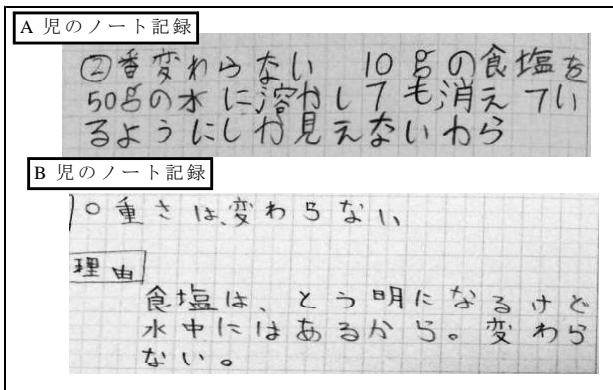 A 児のノート記録
②番変わらない 10gの食塩を
50gの水に溶かしても消えてい
るようにしか見えないから
B 児のノート記録
○重さは、変わらない
理由
食塩は、とう明になるけど
水中にはあるから。変わら
ない。